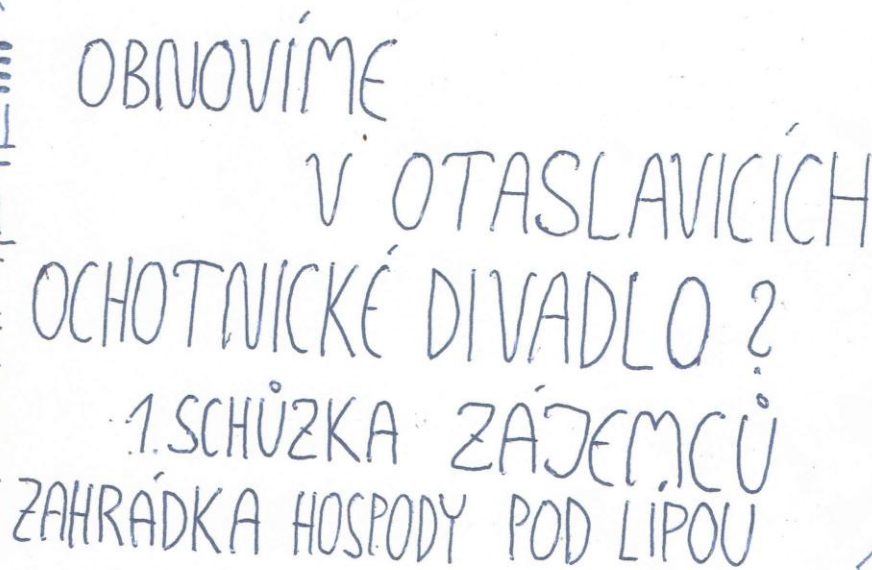 OBNOVÍME
V OTASLAVICÍCH
OCHOTNICKÉ DIVADLO ?
1. SCHŮZKA ZÁJEMCŮ
ZAHRÁDKA HOSPODY POD LÍPOU